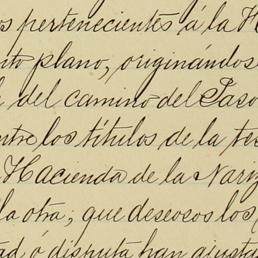 os pertenecientes á la H
ito plano, originándos
del camino del Paso
ntre los títulos de la te
Hacienda de la Nari
la otra; que deseosos los
ad ó disputa han ajusta